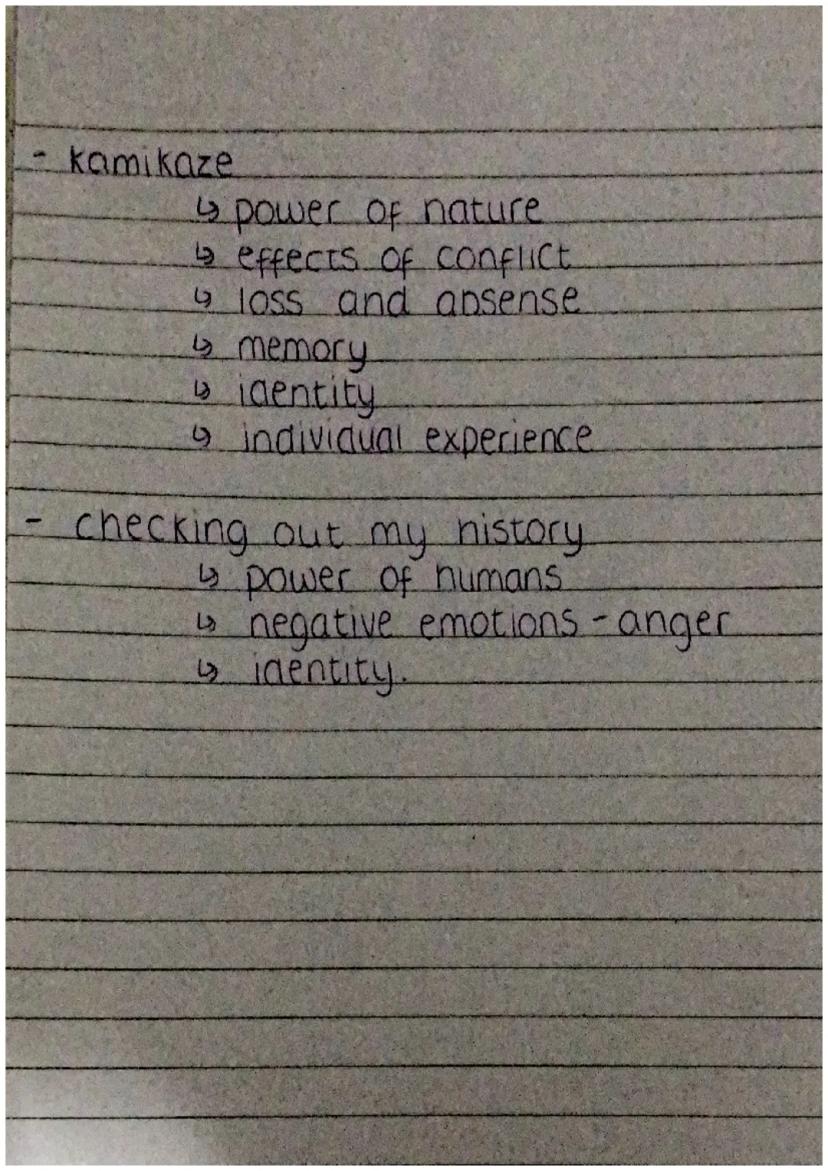 - kamikaze
↳ power of nature
↳ effects of conflict
↳ loss and absense
↳ memory
↳ identity
↳ individual experience
- checking out my history
↳ power of humans
↳ negative emotions - anger
↳ identity.